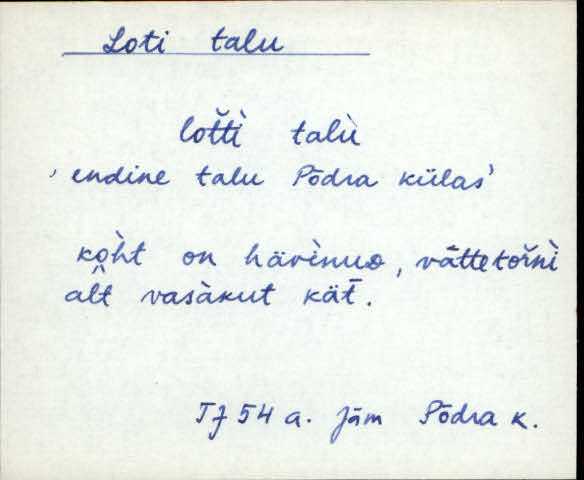 Loti talu
lot̆ti̇̀ talù
'endine talu Põdra külas'
kòht on hävìnuo, vāttetor̆nì
al̆t vasàkut kät̄.
TJ 54 a. Jäm Põdra k.